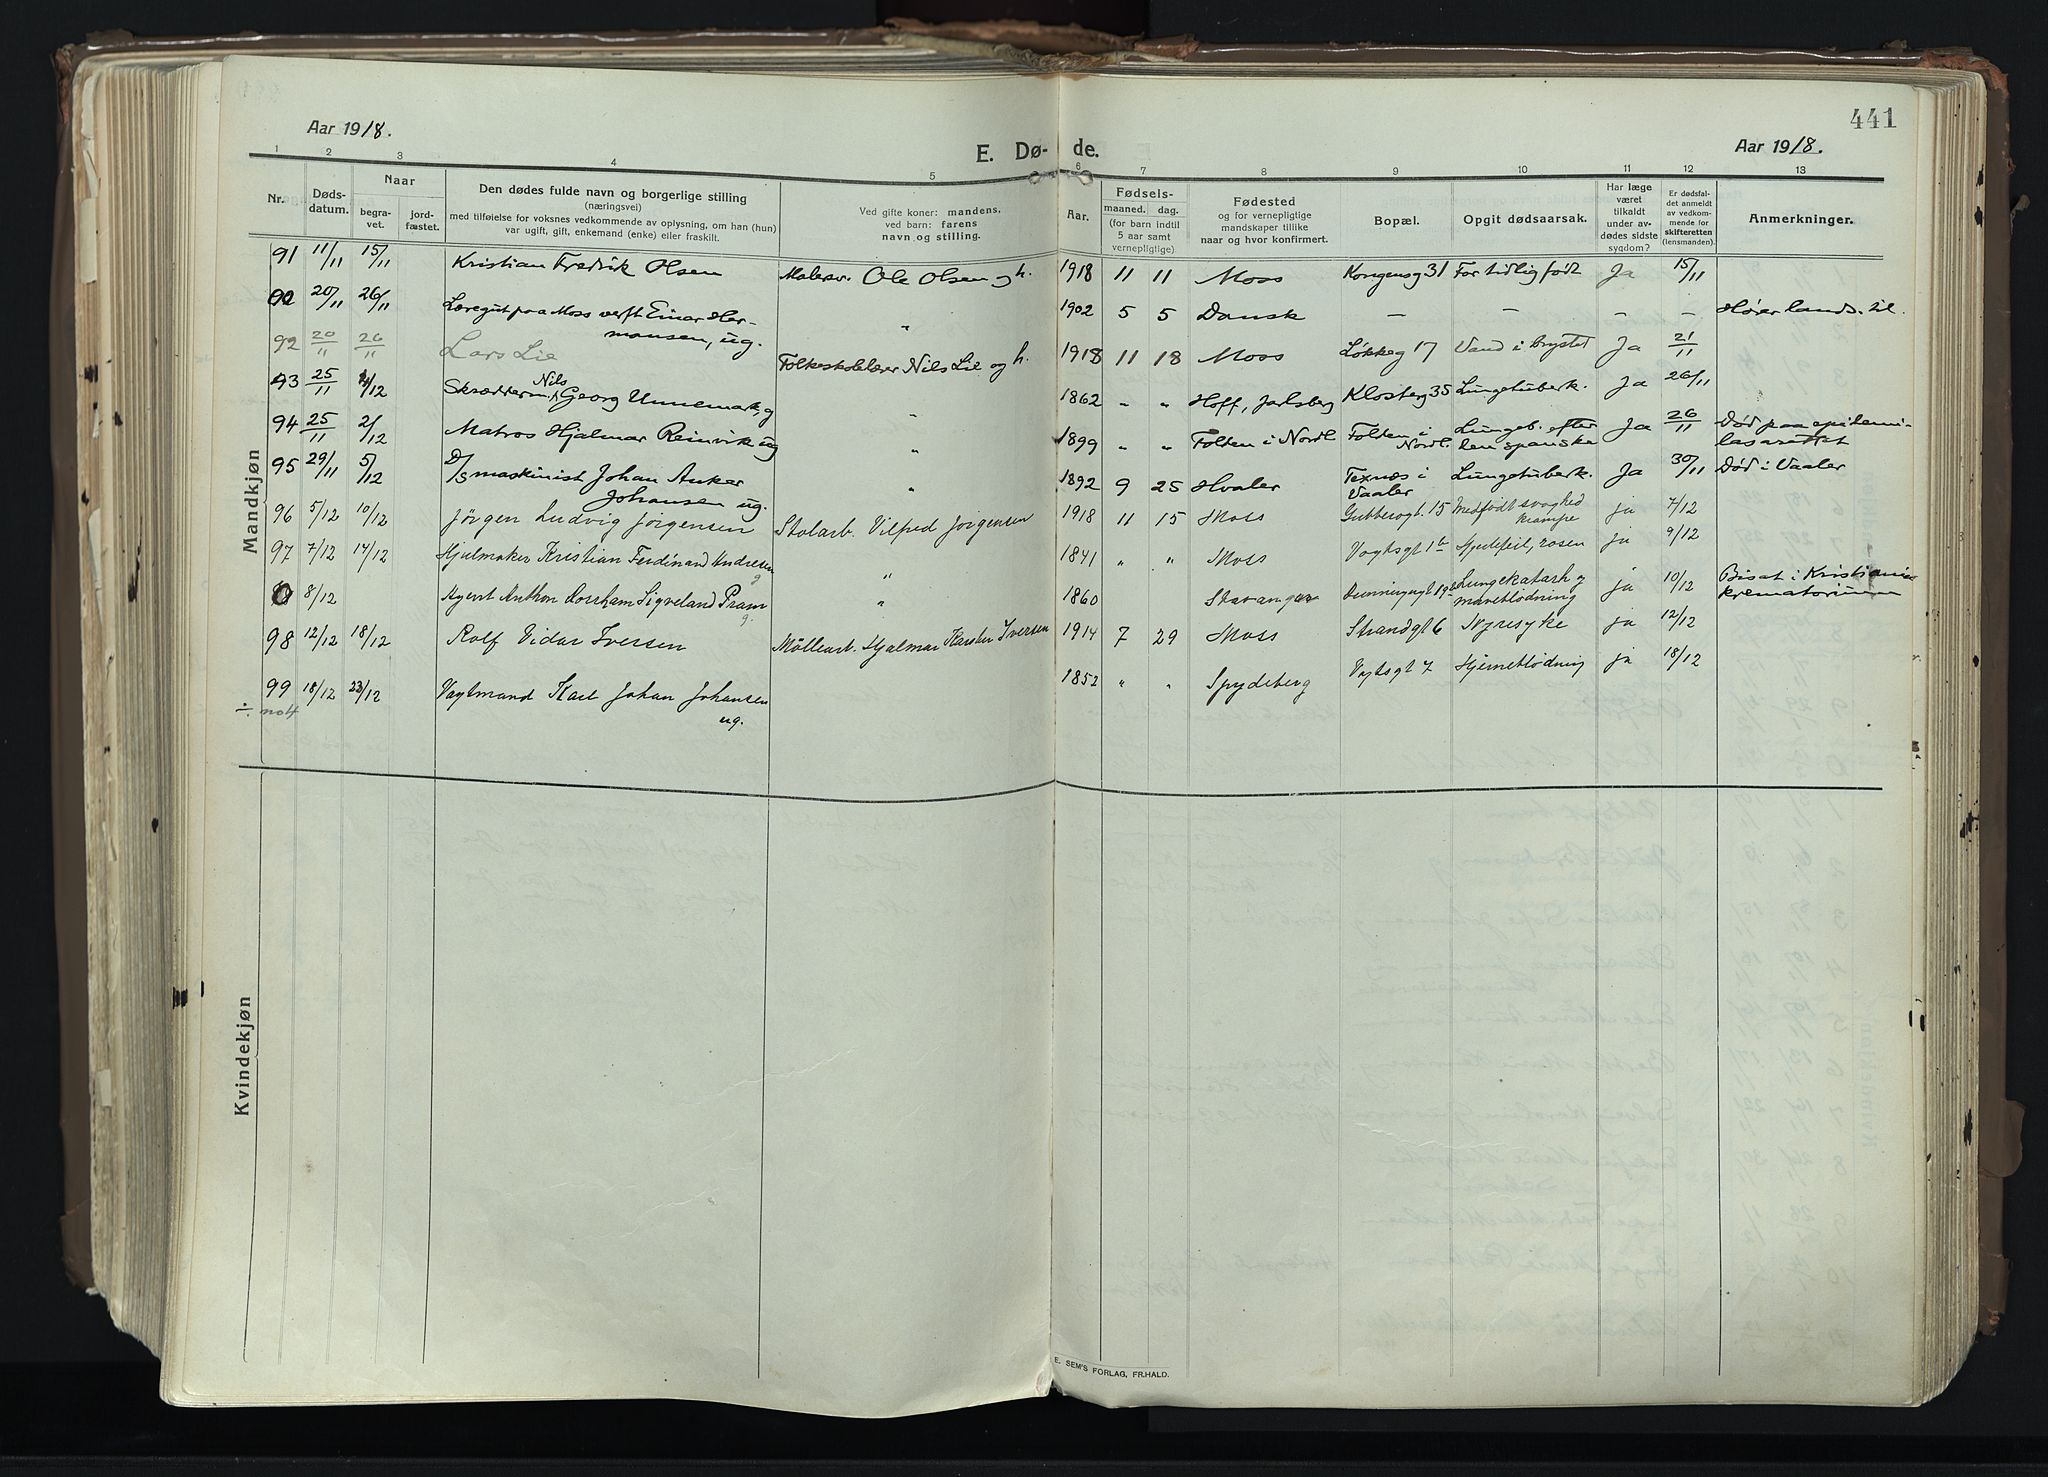 441
Aar 1918.
E. Dø-
de.
Aar 1918.
1 2 3 4 5 6 7 8 9 10 11 12 13
Nr.
Døds-
datum.
Naar
begra-
vet.
jord-
fæstet.
Den dødes fulde navn og borgerlige stilling
(næringsvei)
med tilføielse for voksnes vedkommende av oplysning, om han (hun)
var ugift, gift, enkemand (enke) eller fraskilt.
Ved gifte koner: mandens,
ved barn: farens
navn og stilling.
Aar.
Fødsels-
maaned. dag.
(for barn indtil
5 aar samt
vernepligtige).
Fødested
og for vernepligtige
mandskaper tillike
naar og hvor konfirmert.
Bopæl.
Opgit dødsaarsak.
Har læge
været
tilkaldt
under av-
dødes sidste
sygdom?
Er dødsfal-
det anmeldt
av vedkom-
mende for
skifteretten
(lensmanden).
Anmerkninger.
Mandkjøn
91 11/11 15/11 Kristian Fredrik Olsen Ole Olsen og h. 1918 11 11 Moss Kongensg 31 For tidlig født Ja 15/11
20/11 26/11 Læregut paa Moss verft Einar Her-
mansen, ug. " 1902 5 5 Dansk — — — — Hører lands. til.
92 20/11 26/11 Lars Lie Folkeskolelærer Nils Lie og h. 1918 11 18 Moss Løkkeg 17 Vand i brystet Ja 21/11
93 25/11 2/12 Skrædderm. Nils Georg Unnemark, g " 1862 " " Hoff, Jarlsberg Klosterg 35 Lungetuberk. Ja 26/11
94 25/11 2/12 Matros Hjalmar Reinvik ug " 1899 " " Folden i Nordl. Folden i
Nordl. Lungeb. efter
den spanske Ja 26/11 Død paa epidemi-
lasarettet
95 29/11 5/12 D/S maskinist Johan Anker
Johansen ug. " 1892 9 25 Hvaler Texnæs i
Vaaler Lungetuberk. Ja 30/11 Død i Vaaler
96 5/12 10/12 Jörgen Ludvig Jörgensen Stolarb. Vilfred Jörgensen 1918 11 15 Moss 15 Medfödt svaghed
krampe ja 7/12
97 7/12 14/12 Hjulmaker Kristian Ferdinand Andresen
g " 1841 " " Moss Vogtsgt 1b Hjertefeil, rosen ja 9/12
8/12 Agent Anthon Sigveland Pram
g. " 1860 Stavanger Dronningsgt Lungekatarh og
maveblödning ja 10/12 Bisat i Kristiania
krematorium
98 12/12 18/12 Rolf Vidar Iversen Möllearb. Hjalmar Karsten Iversen 1914 7 29 Moss Strandgt 6 Nyresyke ja 12/12
99 18/12 23/12 Vagtmand Karl Johan Johansen
ug. 1852 " " Spydeberg Vogtsgt 7 Hjerneblödning ja 18/12
÷ no4
Kvindekjøn
E. SEM'S FORLAG, FR.HALD.